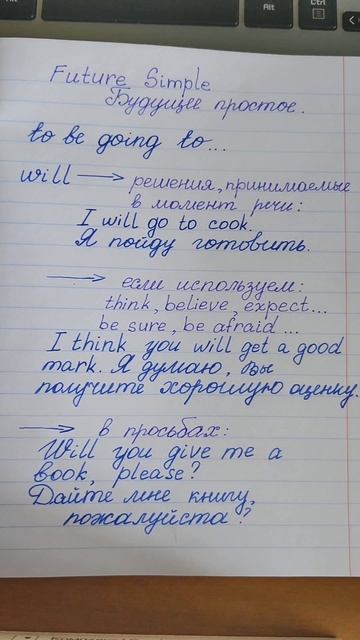 Alt
Alt
Ctrl
Future Simple
Будущее простое.
to be going to...
will → решения, принимаемые
в момент речи:
I will go to cook.
Я пойду готовить.
→ если используем:
think, believe, expect...
be sure, be afraid ...
I think you will get a good
mark. Я думаю, вы
получите хорошую оценку.
→ в просьбах:
Will you give me a
book, please?
Дайте мне книгу,
пожалуйста?